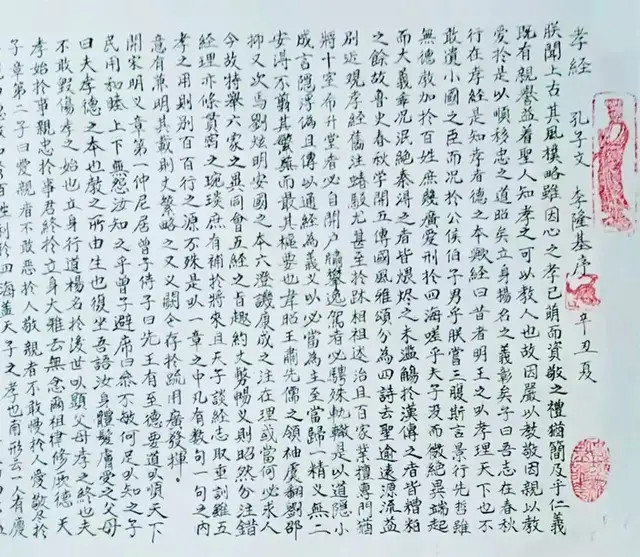 孝经 孔子文 李隆基序 辛丑夏
朕聞上古其風樸略雖因心之孝已萌而資敬之禮猶簡及乎仁義
既有親譽益着聖人知孝之可以教人也故因嚴以教敬因親以教
愛於是以順移忠之道昭矣立身揚名之義彰矣子曰吾志在春秋
行在孝經是知孝者德之本歟經曰昔者明王之以孝理天下也不
敢遺小國之臣而况於公侯伯子男乎朕嘗三複斯言景行先哲雖
無德教加於百姓庶幾廣愛刑於四海嗟乎夫子没而微絶異端起
而大義乖况泯絶秦得之者皆煨燼之末濫觴於漢傳之者皆糟粕
之餘故魯史春秋學開五傳國風雅頌分為四詩去聖逾遠源流益
别近觀孝經舊注踳駁尤甚至於跡相祖述治且百家業擅專門猶
將十室希升堂者必自開户牖攀逸駕者必騁殊軌轍是以道隱小
成言隱浮偽且傳以通經為義義以必當為主至當歸一精義無二
安得不翦其繁蕪而撮其樞要也韋昭王肅先儒之領袖虞翻劉邵
抑又次焉劉炫明安國之本六澄譏康成之注在理或當何必求人
今故特舉六家之異同會五經之旨趣約文敷暢義則昭然分注錯
經理亦條貫寫之琬琰庶有補於將來且夫子談經志取垂訓雖五
孝之用則别百百行之源不殊是以一章之中凡有數句一句之内
意有兼明其載則文繁略之又义闕今存於疏用廣發揮
開宗明义章第一仲尼居曾子侍子曰先王有至德要道以順天下
民用和睦上下無怨汝知之乎曾子避席曰叅不敏何足以知之子
曰夫孝德之本也教之所由生也復坐吾語汝身體髮膚受之父母
不敢毁傷孝之始也立身行道揚名於後世以顯父母孝之終也夫
孝始於事親忠於事君終於立身大雅云無念爾祖律修厥德 天
子章第二子曰愛親者不敢惡於人敬親者不敢慢於人愛敬盡於
百姓刑於四海蓋天子之孝也甫刑云一人有慶